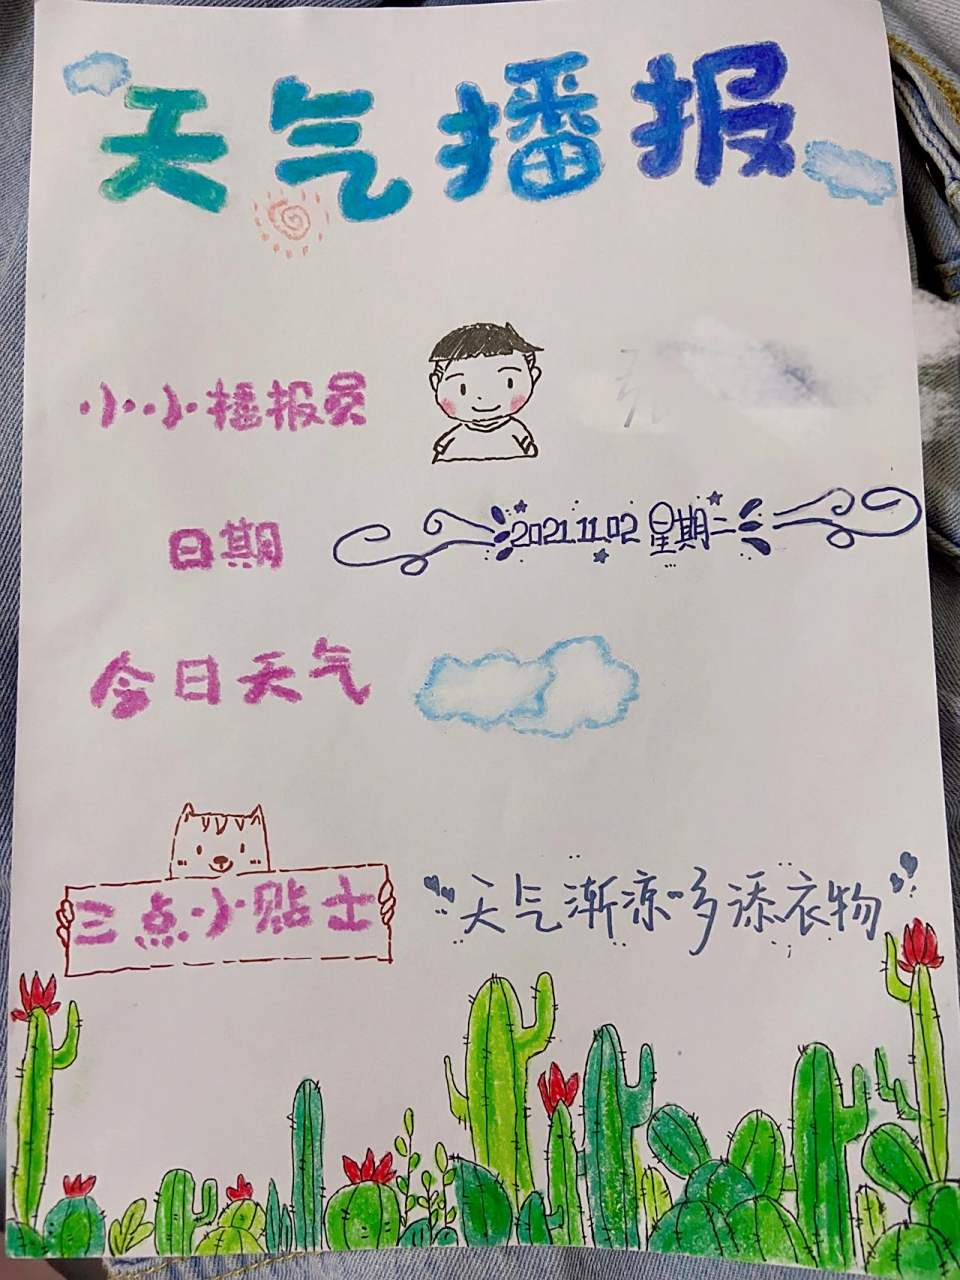 天气播报
小小播报员
日期 2021.11.02 星期二
今日天气
三点小贴士 天气渐凉多添衣物